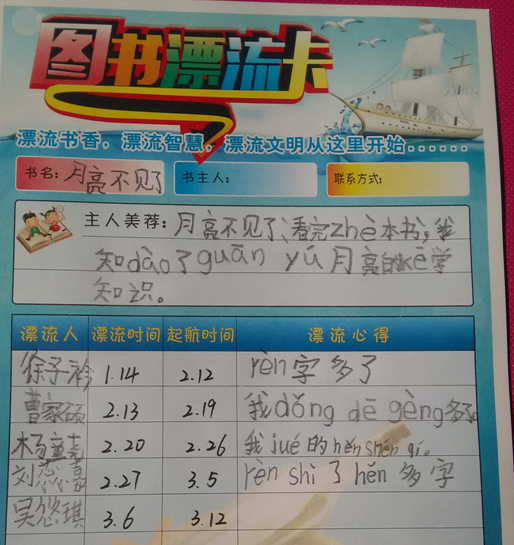 图书漂流卡
漂流书香，漂流智慧，漂流文明从这里开始......
书名：月亮不见了 书主人： 联系方式：
主人美荐：月亮不见了，看完zhè本书，我
知dào了guān yú月亮的kē学
知识。
漂流人 漂流时间 起航时间 漂流心得
徐子衿 1.14 2.12 rèn字多了
曹家硕 2.13 2.19 我dǒng dē gèng多了
杨童尧 2.20 2.26 我jué的hěn shén qí。
刘芯嘉 2.27 3.5 rèn shi了hěn多字
吴悠琪 3.6 3.12